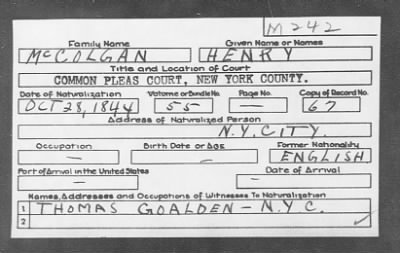 M242
Family Name Given Name or Names
McCOLGAN HENRY
Title and Location of Court
COMMON PLEAS COURT, NEW YORK COUNTY.
Date of Naturalization Volume or Bundle No. Page No. Copy of Record No.
OCT 28, 1844 55 — 67
Address of Naturalized Person
N.Y. CITY.
Occupation Birth Date or Age Former Nationality
— — ENGLISH
Port of Arrival in the United States Date of Arrival
— —
Names, Addresses and Occupations of Witnesses To Naturalization
1 THOMAS GOALDEN — N.Y.C.
2